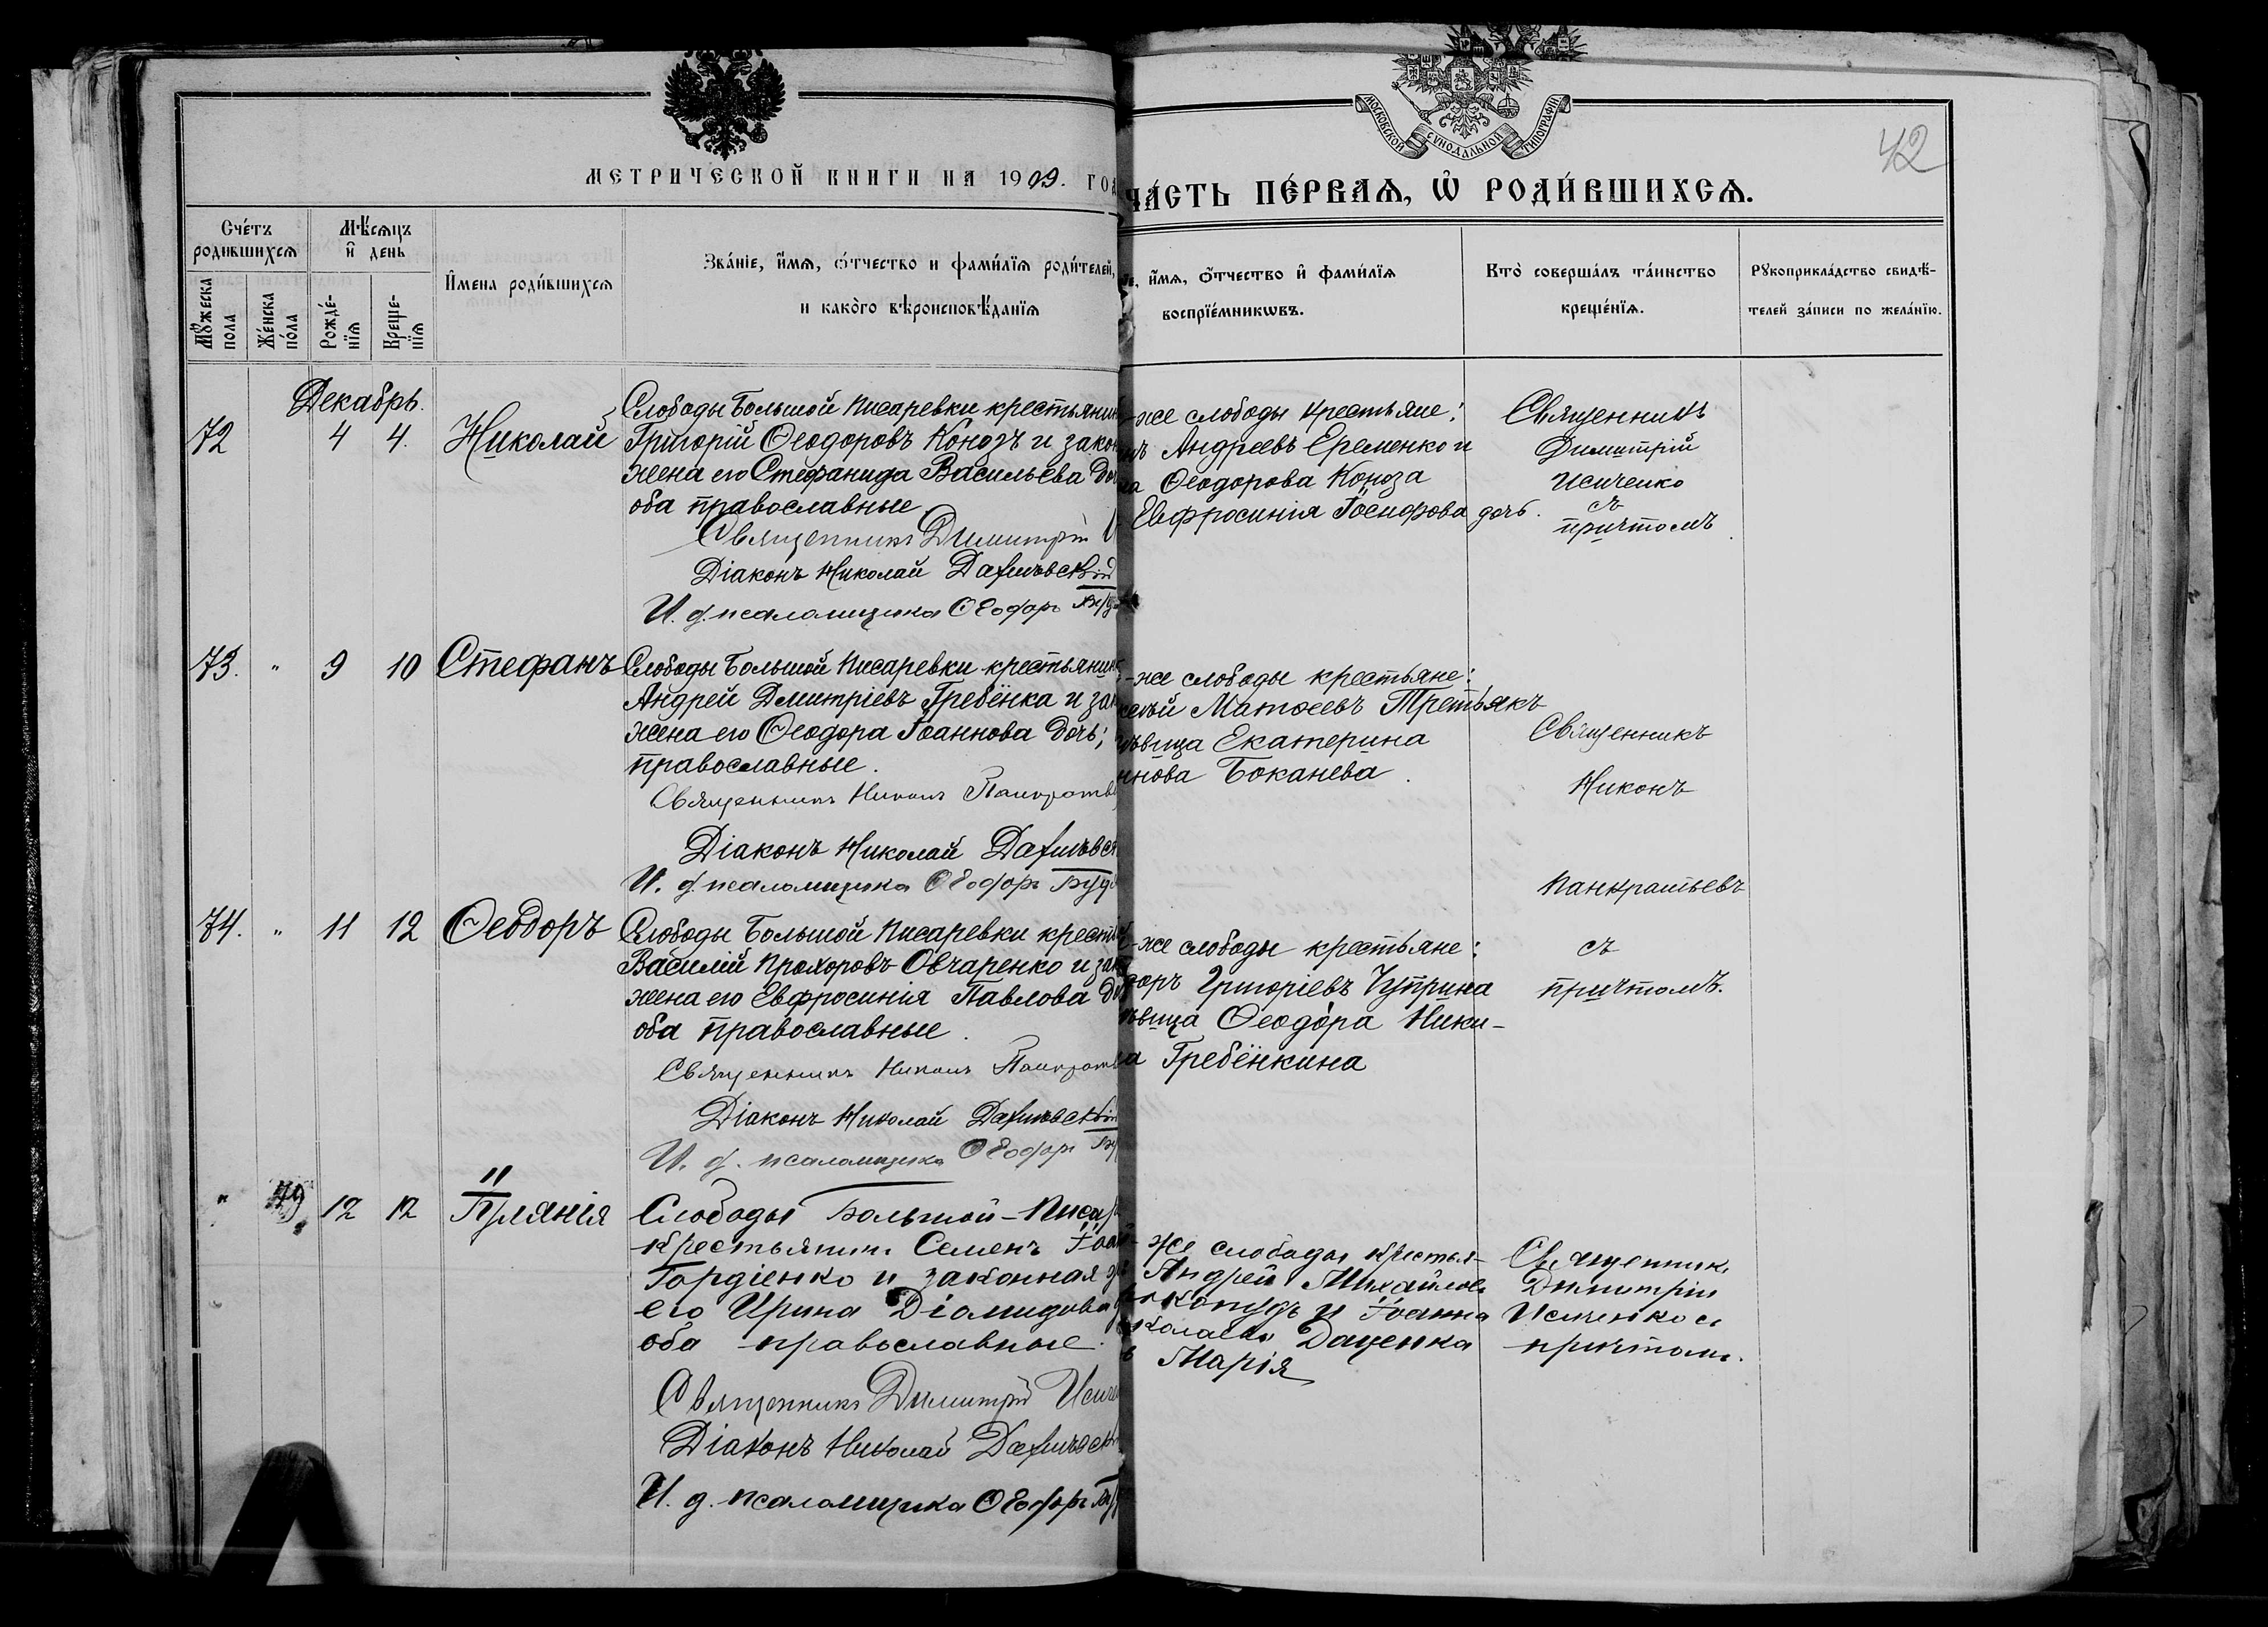 МОСКОВСКОЙ СѴНОДАЛЬНОЙ ТИПОГРАФІИ
42
МЕТРИЧЕСКОЙ КНИГИ НА 1909. ГОД
ЧА́СТЬ ПЕ́РВАѦ, Ѡ҆ РОДИ́ВШИХСѦ.
Сче́тъ родившихсѧ
Мѣ́сѧцъ и҆ день
Мꙋ́жеска пола
Же́нска по́ла
Рожде́-нїѧ
Креще-нїѧ
И҆мена роди́вшихсѧ
Зва́нїе, и҆́мѧ, ѻ҆́тчество и фами́лїѧ роди́телей,
и како́го вѣроисповѣ́данїѧ
е, и҆́мѧ, ѻ҆́тчество и҆ фами́лїѧ
воспрїе́мникѡвъ.
Кто̀ соверша́лъ та́инство
креще́нїѧ.
Рꙋкоприкла́дство свидѣ́-
телей за́писи по жела́нїю.
Декабрь.
72 4 4. Николай
Слободы Большой Писаревки крестьянинъ
Григорій Ѳеодоровъ Конозъ и закон
жена его Стефанида Васильева доч
оба православные
Священникъ Димитрій
Діаконъ Николай
И. д. псаломщика Ѳеодоръ
-же слободы крестьяне:
Андреевъ Еременко и
Ѳеодорова Коноза
Евфросинія Іосифова дочь.
Священникъ
Димитрій
Исиченко
съ
причтомъ
73. " 9 10 Стефанъ
Слободы Большой Писаревки крестьянинъ
Андрей Дмитріевъ Гребёнка и зак
жена его Ѳеодора Іоаннова дочь;
православные.
Священникъ Никонъ Панкратьев
Діаконъ Николай
И. д. псаломщика Ѳеодоръ Буд
-же слободы крестьяне:
Матѳеевъ Третьякъ
ѣвица Екатерина
ннова Боканева.
Священникъ
Никонъ
Панкратьевъ
съ
причтомъ.
74. " 11 12 Ѳеодоръ
Слободы Большой Писаревки кресть
Василій Прохоровъ Овчаренко и зак
жена его Евфросинія Павлова до
оба православные.
Священникъ Никонъ Панкрать
Діаконъ Николай
И. д. псаломщика Ѳеодоръ
-же слободы крестьяне:
доръ Григоріевъ Чуприна
ѣвица Ѳеодора Ники-
а Гребёнкина
" 12 12
Слободы Большой-Писар
крестьянинъ Семенъ Іоан
Гордіенко и законная ж
его Ирина Діомидова
оба православные.
Священникъ Димитрій Исич
Діаконъ Николай
И. д. псаломщика Ѳеодоръ
же слободы крестья-
Андрей Михайловъ
и Іоанна
Даценка
Марія
Священникъ
Димитрій
Исиченко съ
причтомъ.